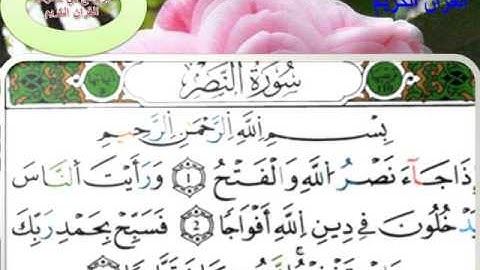 القرآن الكريم
سُورَةُ النَّصْرِ
بِسْمِ اللَّهِ الرَّحْمَٰنِ الرَّحِيمِ
إِذَا جَاءَ نَصْرُ اللَّهِ وَالْفَتْحُ ١ وَرَأَيْتَ النَّاسَ
يَدْخُلُونَ فِي دِينِ اللَّهِ أَفْوَاجًا ٢ فَسَبِّحْ بِحَمْدِ رَبِّكَ